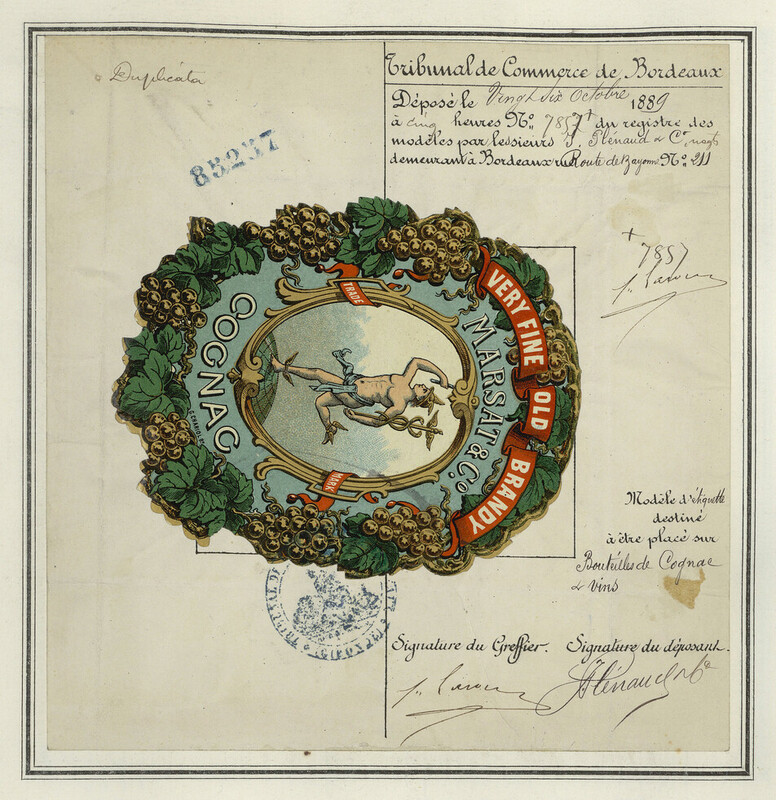 Duplicata
85237
Tribunal de Commerce de Bordeaux
Déposé le Vingt six Octobre 1889
à cinq heures Nº 7857 du registre des
modèles par lessieurs J. Plénaud & Cⁱᵉ
demeurant à Bordeaux Route de Bayonne Nº 211
7857
VERY FINE OLD BRANDY
MARSAT & Cº
TRADE
MARK
COGNAC
Modèle d'étiquette
destiné
à être placé sur
Bouteilles de Cognac
& vins
TRIBUNAL DE
Signature du Greffier. Signature du déposant.